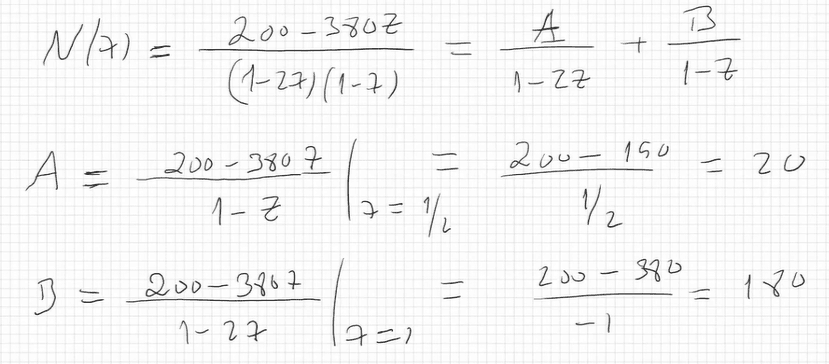 N(z) = (200 - 380z) / ((1-2z)(1-z)) = A / (1-2z) + B / (1-z)
A = (200 - 380z) / (1-z) |z=1/2 = (200 - 190) / (1/2) = 20
B = (200 - 380z) / (1-2z) |z=1 = (200 - 380) / (-1) = 180